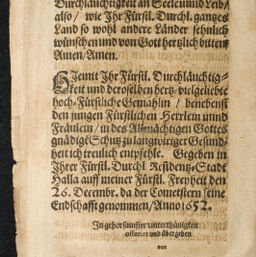 Durchläuchtigkeit an Seel und Leib/
also/ wie Ihr Fürstl. Durchl. gantzes
Land so wohl andere Länder sehnlich
wünschen und von Gott hertzlich bitten
Amen/ Amen.
Hiemit Ihr Fürstl. Durchläuchtig-
keit und deroselben hertz-vielgeliebte
hoch-Fürstliche Gemahlin / benebenst
den jungen Fürstlichen Herrlein unnd
Fräulein / in des Allmächtigen Gottes
gnädige Schutz zu langwiriger Gesund-
heit ich treulich empfehle. Gegeben in
Ihrer Fürstl. Durchl. Residentz-Stadt
Halla auff meiner Fürstl. Freyheit den
26. Decembr. da der Cometstern seine
Endschafft genommen / Anno 1652.
In gehorsamster unterthänigkeit
offeriret und übergeben
von